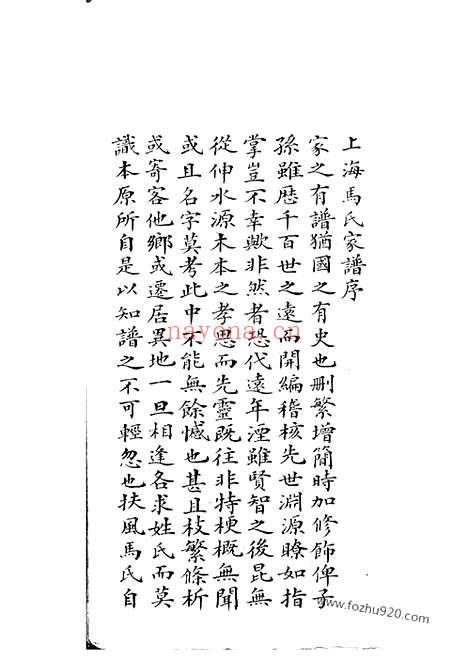 上海馬氏家譜序
家之有譜猶國之有史也刪繁增簡時加修飾俾子
孫雖歷千百世之遠而開編稽核先世淵源瞭如指
掌豈不幸歟非然者恐代遠年湮雖賢智之後昆無
從伸水源木本之孝思而先靈既往非特梗概無聞
或且名字莫考此中不能無餘憾也甚且枝繁條析
或寄客他鄉或遷居異地一旦相逢各求姓氏而莫
識本原所自是以知譜之不可輕忽也扶風馬氏自
nayona.cn
www.fozhu920.com